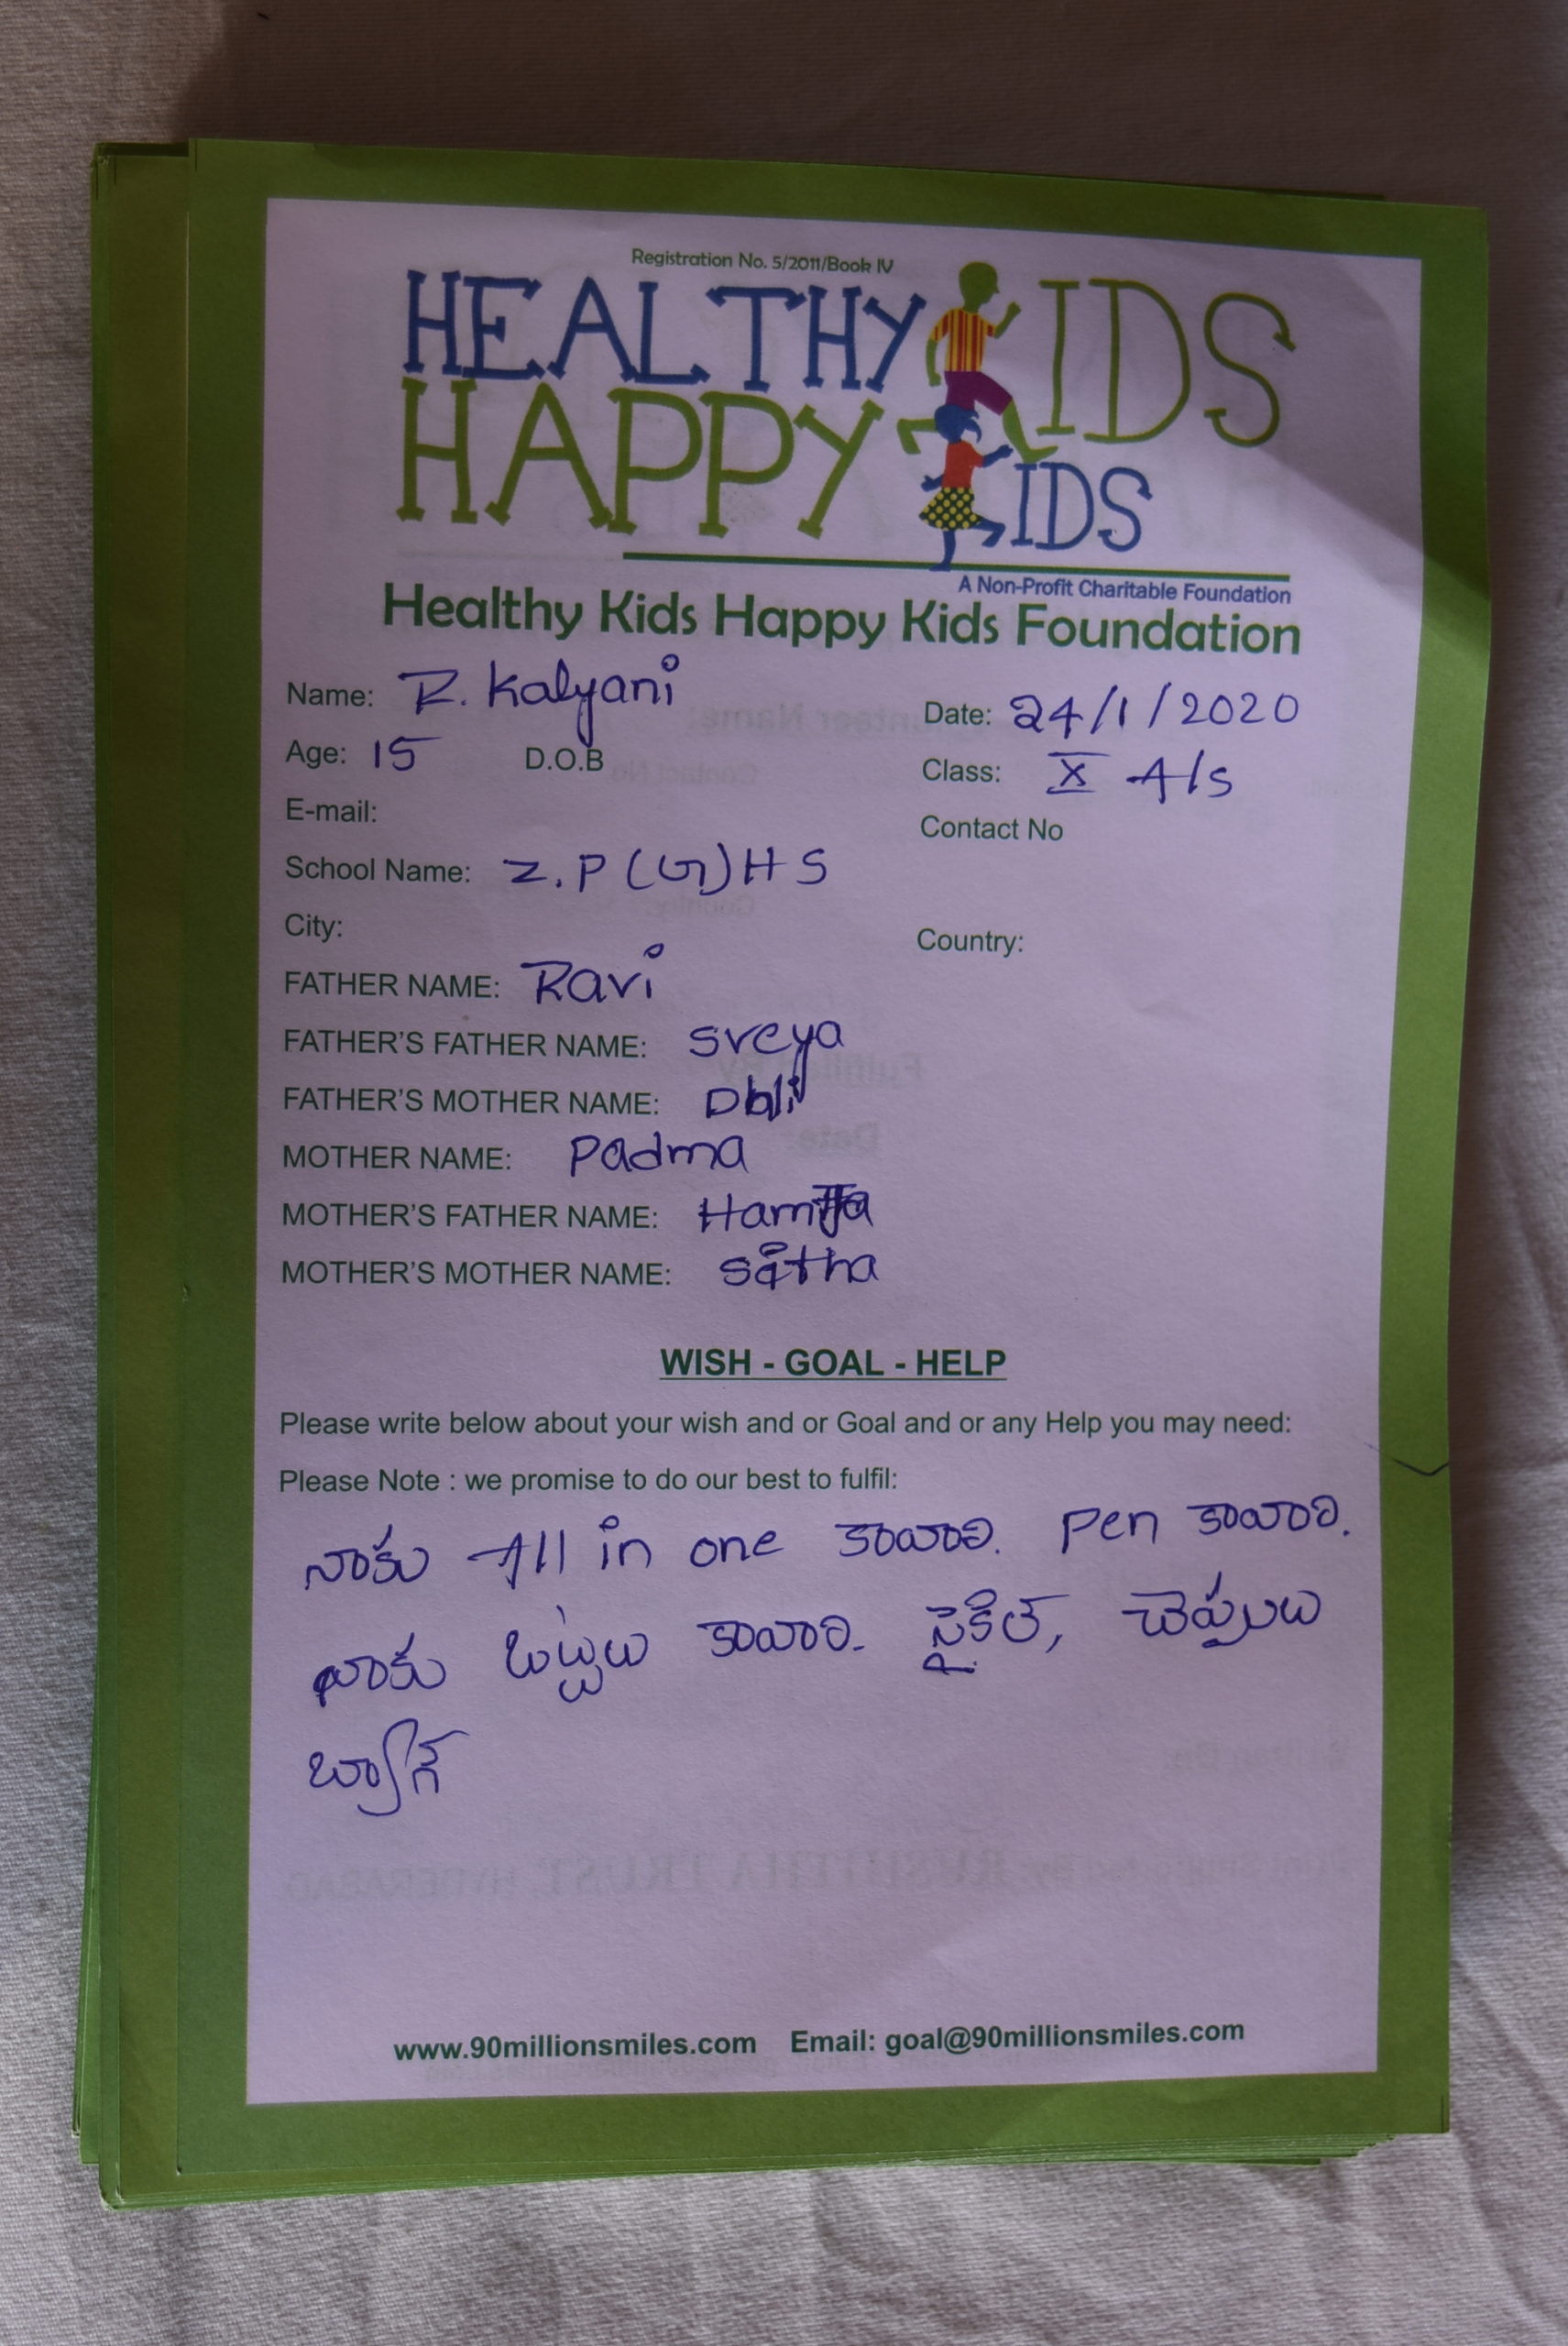 Registration No. 5/2011/Book IV
HEALTHY KIDS
HAPPY KIDS
A Non-Profit Charitable Foundation
Healthy Kids Happy Kids Foundation
Name: R. Kalyani
Date: 24/1/2020
Age: 15 D.O.B
Class: X A/s
E-mail:
Contact No
School Name: Z.P(G)HS
City:
Country:
FATHER NAME: Ravi
FATHER'S FATHER NAME: sreya
FATHER'S MOTHER NAME:
MOTHER NAME: Padma
MOTHER'S FATHER NAME:
MOTHER'S MOTHER NAME:
WISH - GOAL - HELP
Please write below about your wish and or Goal and or any Help you may need:
Please Note : we promise to do our best to fulfil:
నాకు All in one కావాలి. Pen కావాలి.
నాకు బట్టలు కావాలి. సైకిల్, చెప్పులు
బ్యాగ్
www.90millionsmiles.com Email: goal@90millionsmiles.com